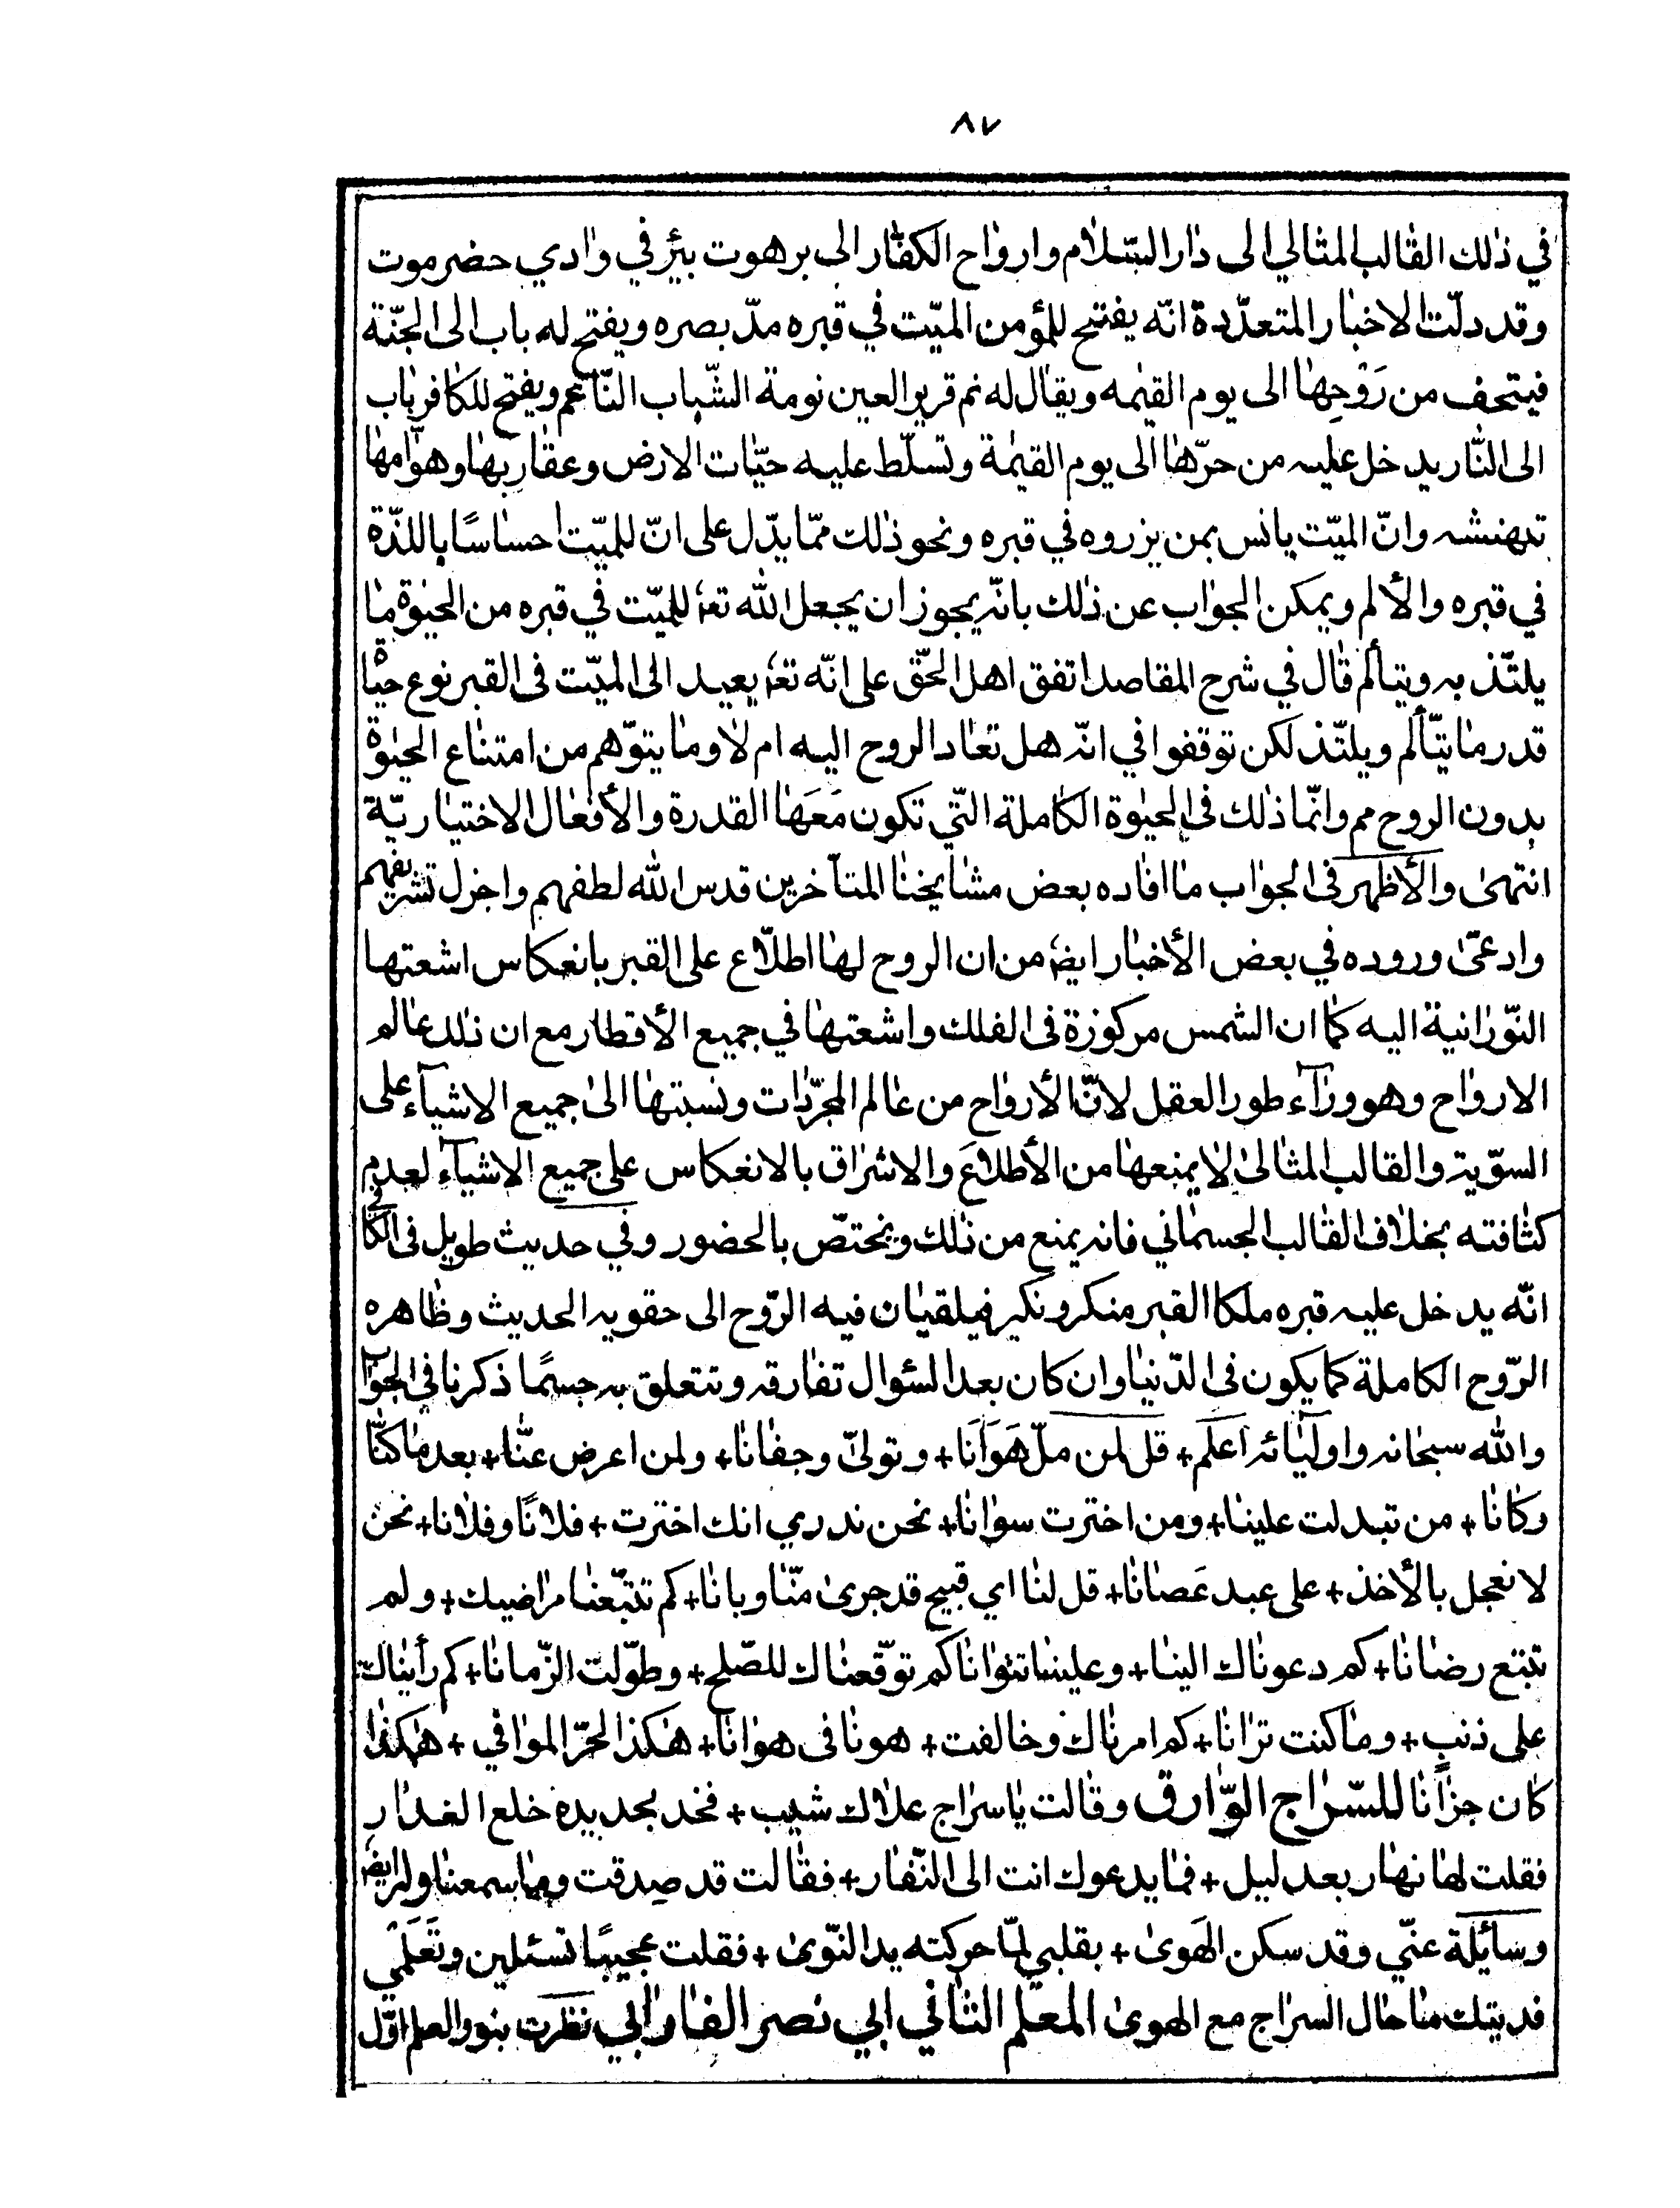 ٨٧
في ذلك القالب المثالي الى دار السّلام وارواح الكفّار الى برهوت بئر في وادي حضرموت
وقد دلّت الاخبار المتعدّدة انّه يفتح للمؤمن الميّت في قبره مدّ بصره ويفتح له باب الى الجنّة
فيتحف من رَوْحِها الى يوم القيمه ويقال له نم قرير العين نومة الشّباب النّاعم ويفتح للكافر باب
الى النّار يدخل عليه من حرّها الى يوم القيمة وتسلّط عليه حيّات الارض وعقاربها وهوآمها
تنهشه وانّ الميّت يانس بمن يزروه في قبره ونحو ذلك ممّا يدّل على انّ للميّت احساسًا باللذّة
في قبره والألم ويمكن الجواب عن ذلك بانّه يجوز ان يجعل الله تعا للميّت في قبره من الحيوة ما
يلتّذ به ويتألم قال في شرح المقاصد اتفق اهل الحّق على انّه تعا يعيد الى الميّت فى القبر نوع حيٰاة
قدر ما يتّألم ويلتّذ لكن توقفوا في انّه هل تعاد الروح اليه ام لا وما يتوّهم من امتناع الحيوة
بدون الروح مم وانّما ذلك فى الحيوة الكاملة التّي تكون مَعَها القدرة والأفعال الاختياريّة
انتهى والأظهر فى الجواب ما افاده بعض مشايخنا المتآخرين قدس الله لطفهم واجزل تشريفهم
وادعىّ وروده في بعض الأخبار ايضا من ان الروح لها اطلاّع على القبر بانعكاس اشعتها
النّورانية اليه كما ان الشمس مركوزة فى الفلك واشعتها في جميع الأقطار مع ان ذلك عالم
الارواح وهو ورآء طور العقل لانّ الأرواح من عالم المجرّدات ونسبتها الى جميع الاشيآء على
السوّية والقالب المثالى لا يمنعها من الأطلاعَ والاشراق بالانعكاس على جميع الاشيآء لعدم
كثافته بخلاف القالب الجسماني فانه يمنع من ذلك ويختصّ بالحضور وفي حديث طويل فى الكافي
انّه يدخل عليه قبره ملكا القبر منكر ونكير فيلقيان فيه الرّوح الى حقويه الحديث وظاهره
الرّوح الكاملة كما يكون فى الدّنيا وان كان بعد السّئوال تفارقه وتتعلق به جسمًا ذكرنا في الجواب
والله سبحانه واوليآئه اعلم + قل لمن ملّ هَوَانَا + وتولىّ وجفانا + ولمن اعرض عنّا + بعد ما كنّا
وكانا + من تبدلت علينا + ومن اخترت سوانا + نحن ندري انك اخترت + فلانًا وفلانا + نحن
لا نعجل بالأخذ + على عبد عَصانا + قل لنا اي قبيح قد جرى منّا وبانا + كم تتبّعنا مراضيك + ولم
تتبع رضانا + كم دعوناك الينا + وعلينا تتوانا كم توّقعناك للصّلح + وطوّلت الزّمانا + كم رأيناك
على ذنب + وما كنت ترانا + كم امرناك وخالفت + هونا فى هوانا + هكذا الحّر الموافي + هكذا
كان جزآنا للسّراج الوّارق وقالت يا سراج علاك شيب + فخد بجديده خلع الغدار
فقلت لها نهار بعد ليل + فما يدعوك انت الى النّفار + فقالت قد صدقت وما سمعنا وله ايضا
وسائلة عنّي وقد سكن الهَوىٰ + بقلبي لمّا حركته يد النّوى + فقلت مجيبًا تسئلين وتَعَلمَي
فديتك منا حال السراج مع الهوىٰ المعلّم الثاني ابي نصر الفارابي نظرت بنور العلم اوّل